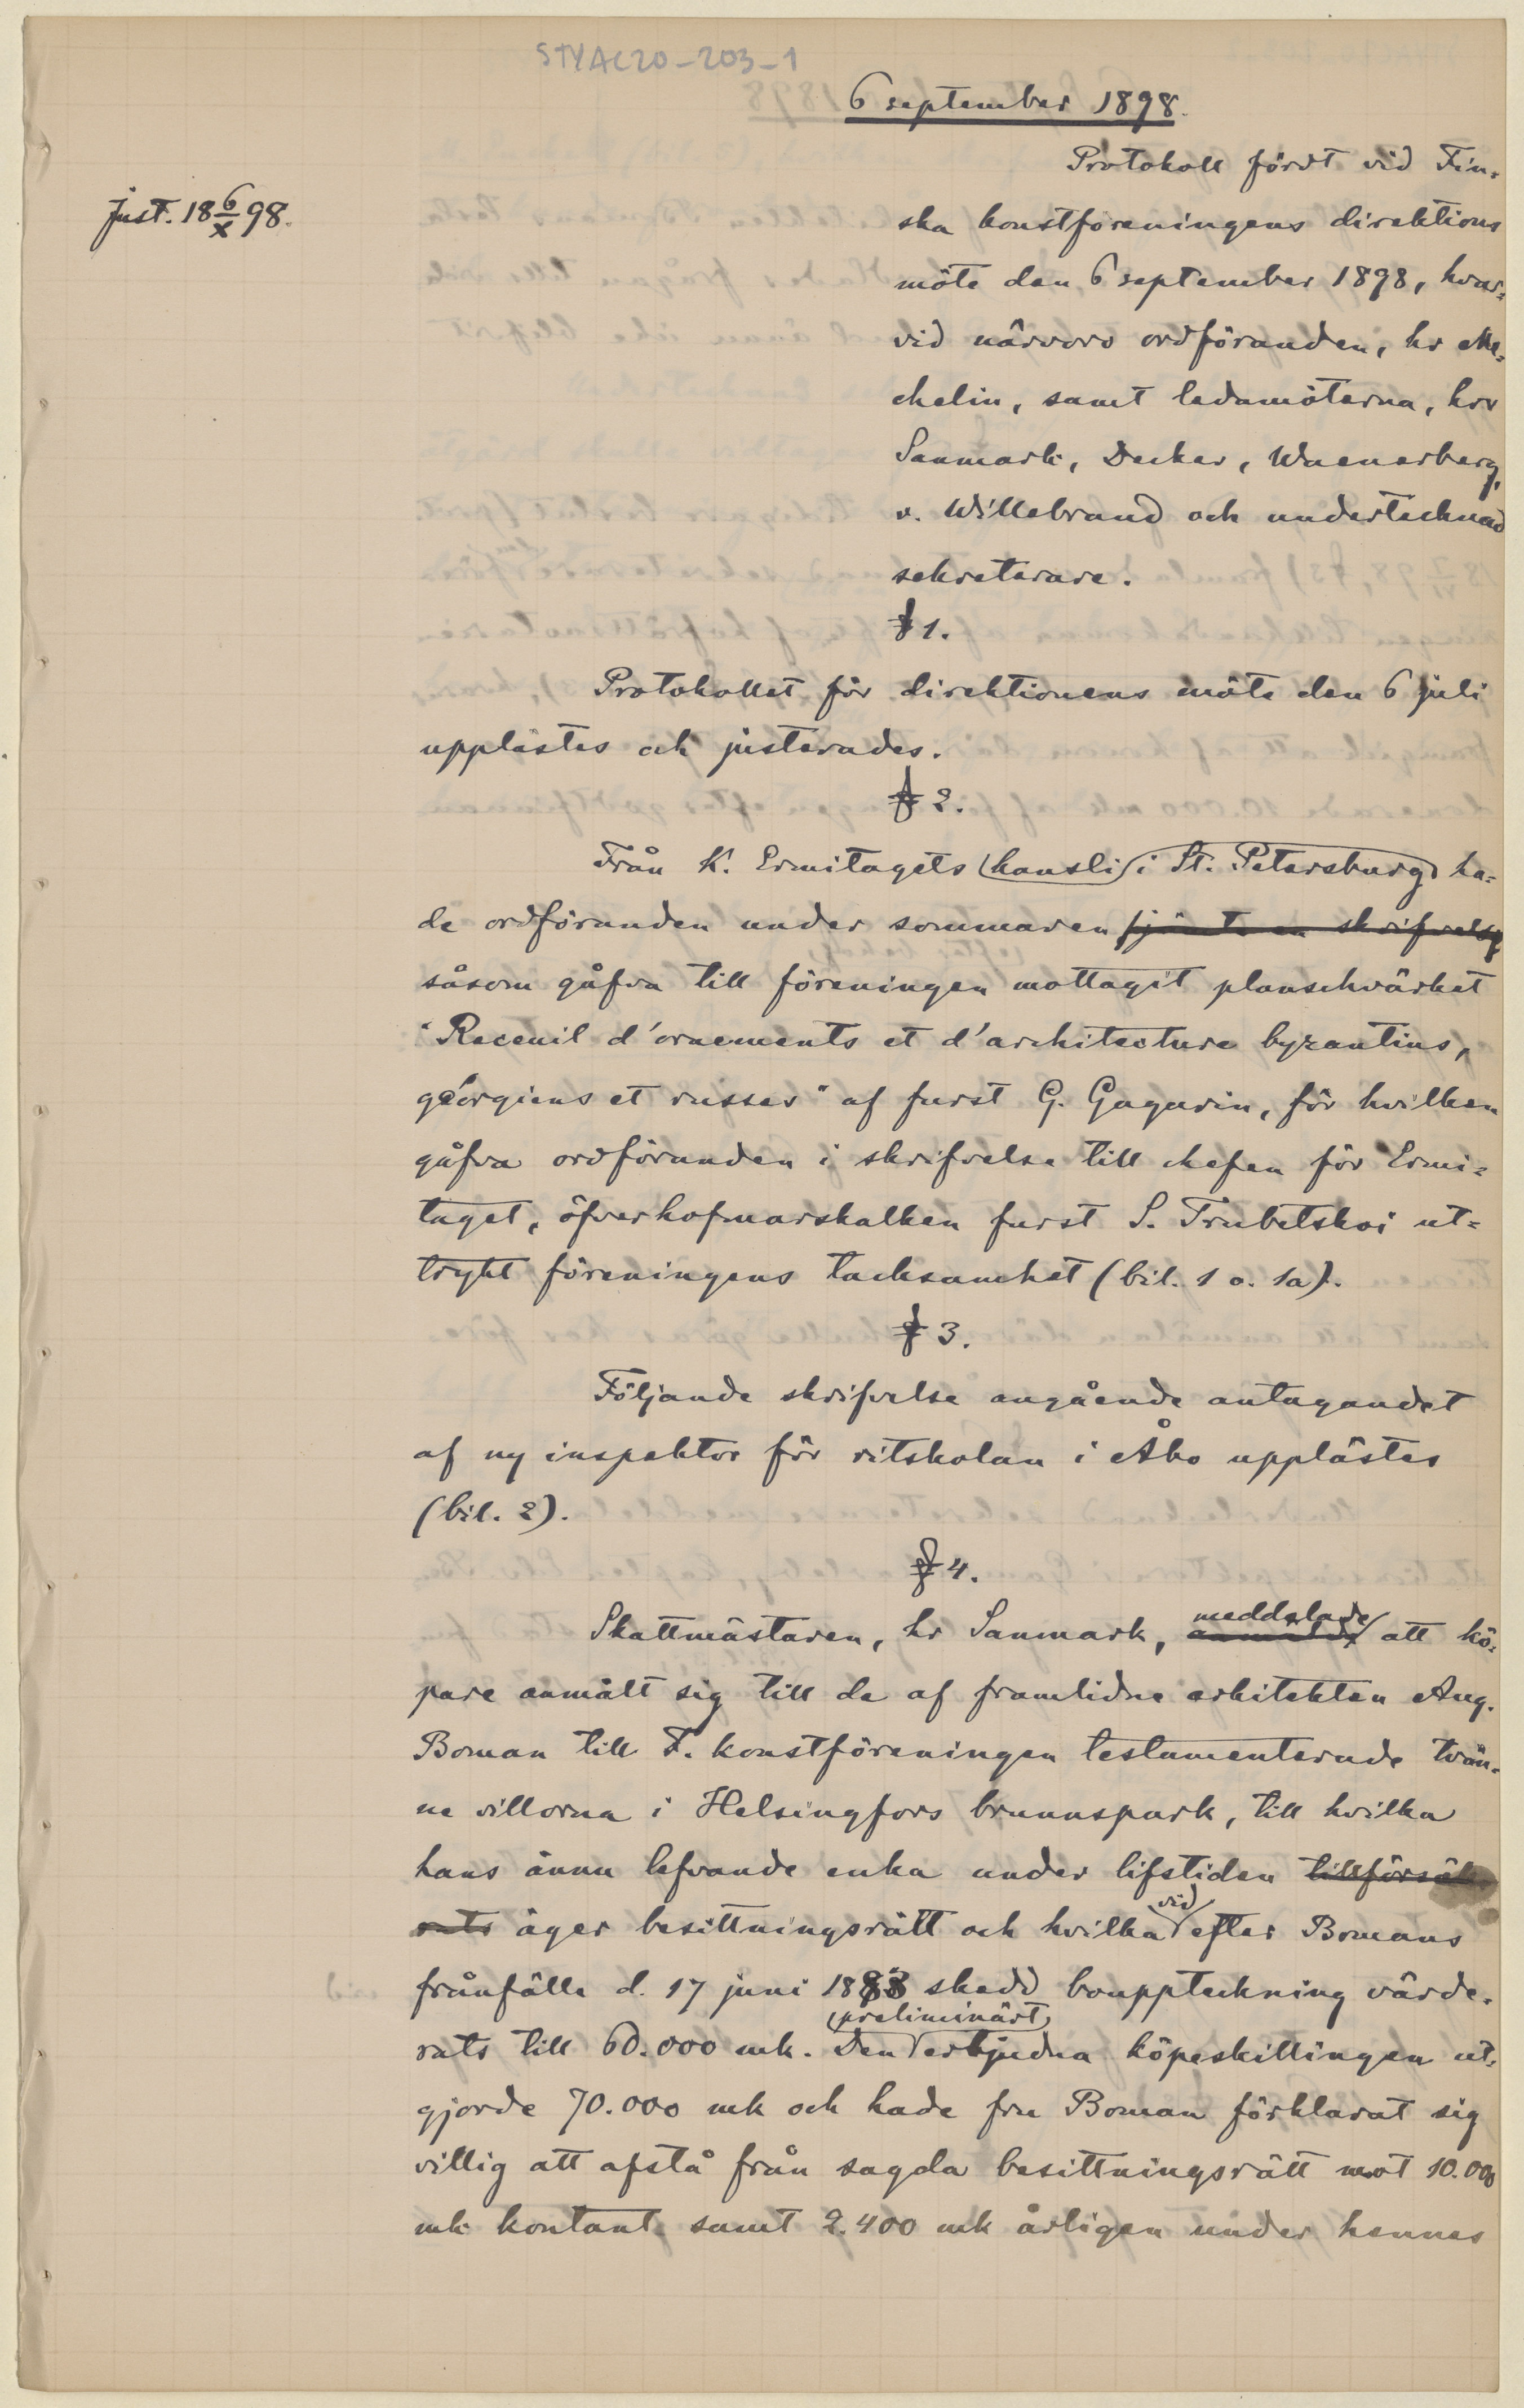 STYAC20-203-1
6 september 1898.
Just. 18 6/X 98.
Protokoll fördt vid Fin-
ska konstföreningens direktions
möte den 6 september 1898, hvar-
vid närvoro ordföranden, hr Me-
chelin, samt ledamöterna, hrr
Sanmark, Decker, Waenerberg,
v. Willebrand och undertecknad
sekreterare.
§ 1.
Protokollet för direktionens möte den 6 juli
upplästes och justerades.
§ 2.
Från K. Ermitagets kansli i St. Petersburg ha-
de ordföranden under sommaren jämte en skrifvelse
såsom gåfva till föreningen mottagit planschvärket
"Receuil d'ornements et d'architecture byzantins,
géorgiens et russes" af furst G. Gagarin, för hvilken
gåfva ordföranden i skrifvelse till chefen för Ermi-
taget, öfverhofmarskalken furst S. Trubetskoi ut-
tryckt föreningens tacksamhet (bil. 1 o. 1a).
§ 3.
Följande skrifvelse angående antagandet
af ny inspektor för ritskolan i Åbo upplästes
(bil. 2).
§ 4.
Skattmästaren, hr Sanmark, anmälde meddelade att kö-
pare anmält sig till de af framlidne arkitekten Aug.
Boman till F. konstföreningen testamenterade tvän-
ne villorna i Helsingfors brunnspark, till hvilka
hans ännu lefvande enka under lifstiden tillförsäk-
rats äger besittningsrätt och hvilka vid efter Bomans
frånfälle d. 17 juni 1883 skedd bouppteckning värde-
rats till 60.000 mk. Den preliminärt erbjudna köpeskillingen ut-
gjorde 70.000 mk och hade fru Boman förklarat sig
villig att afstå från sagda besittningsrätt mot 10.000
mk kontant samt 2.400 mk årligen under hennes